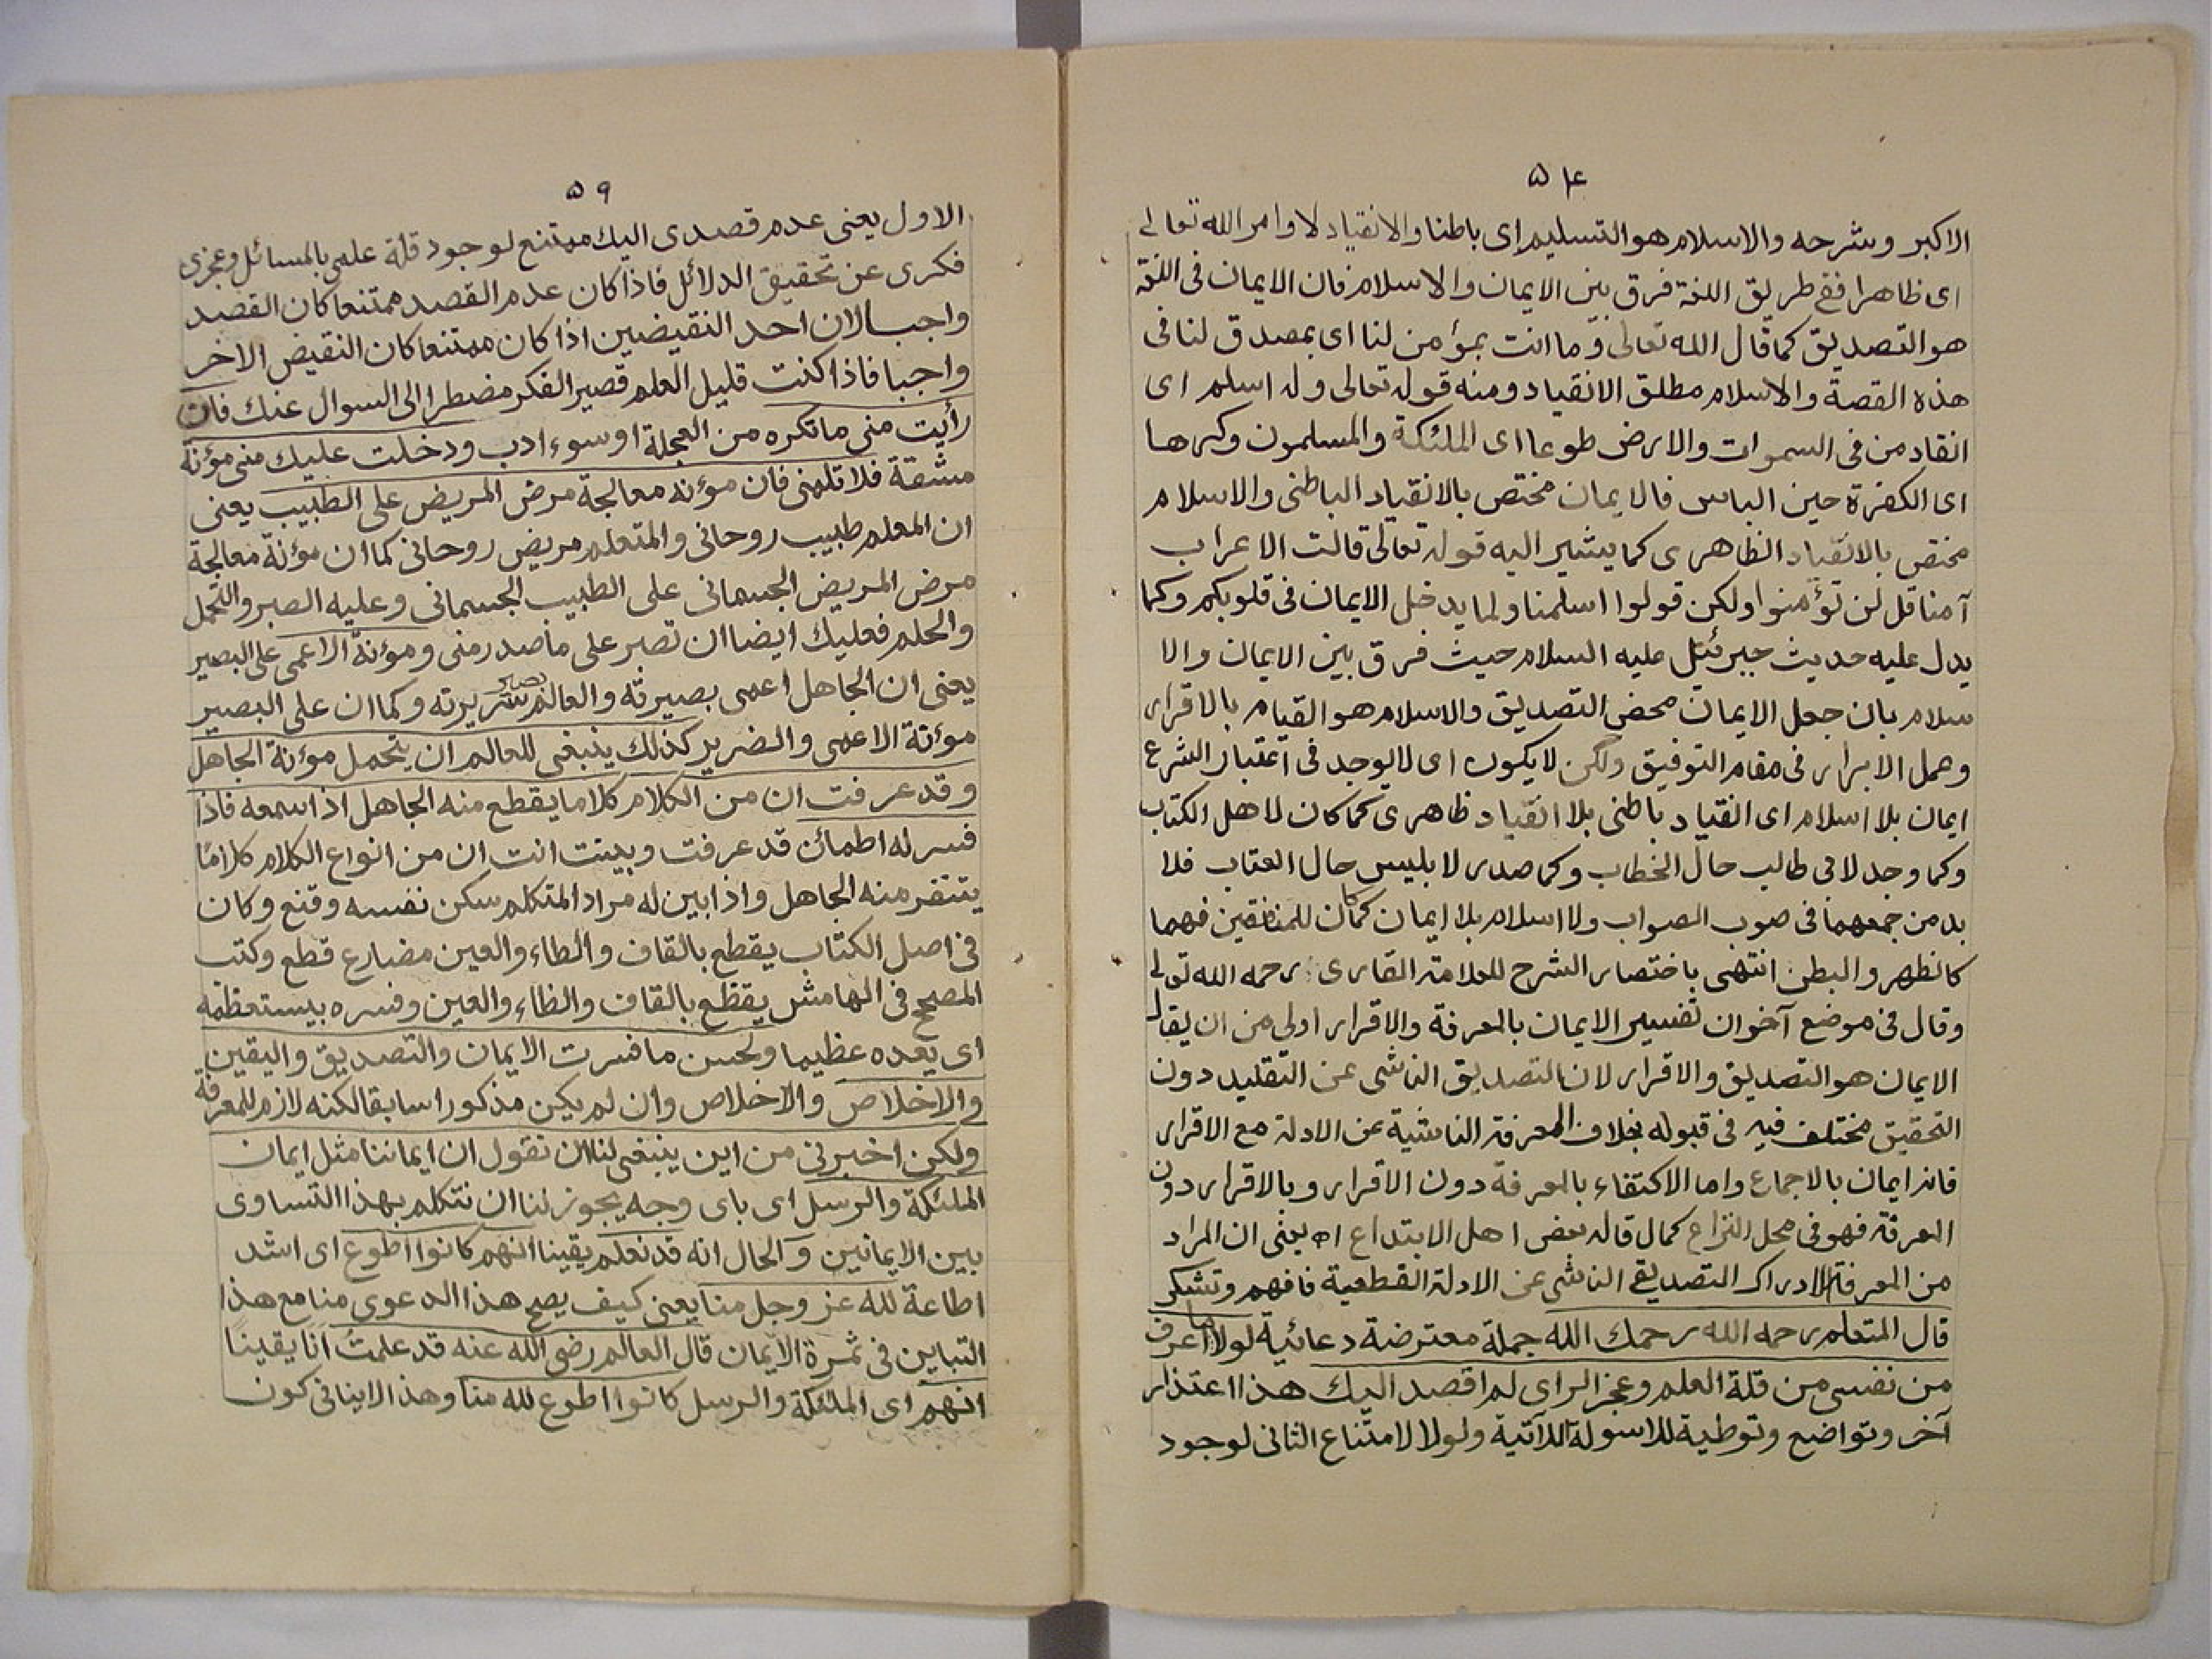 ۵۸
الاكبر وشرحه والاسلام هو التسليم اى باطنا والانقياد لاوامر الله تعالى
اى ظاهرا فقع طريق اللغة فرق بين الايمان والاسلام فان الايمان فى اللغة
هو التصديق كما قال الله تعالى وما انت بمؤمن لنا اى بمصدق لنا فى
هذه القصة والاسلام مطلق الانقياد ومنه قوله تعالى وله اسلم اى
انقاد من فى السموات والارض طوعا اى الملئكة والمسلمون وكرها
اى الكفرة حين الباس فالايمان مختص بالانقياد الباطنى والاسلام
مختص بالانقياد الظاهرى كما يشير اليه قوله تعالى قالت الاعراب
آمنا قل لن تؤمنوا ولكن قولوا اسلمنا ولما يدخل الايمان فى قلوبكم وكما
يدل عليه حديث جبرئيل عليه السلام حيث فرق بين الايمان والا
سلام بان جعل الايمان محض التصديق والاسلام هو القيام بالاقرار
وعمل الابرار فى مقام التوفيق ولكن لا يكون اى لا يوجد فى اعتبار الشرع
ايمان بلا اسلام اى انقياد باطنى بلا انقياد ظاهرى كما كان لاهل الكتاب
وكما وجد لابى طالب حال الخطاب وكما صدر لابليس حال العتاب فلا
بد من جمعهما فى صوب الصواب ولا اسلام بلا ايمان كما كان للمنافقين فهما
كالظهر والبطن انتهى باختصار الشرح للعلامة القارى رحمه الله تعالى
وقال فى موضع آخر ان تفسير الايمان بالمعرفة والاقرار اولى من ان يقال
الايمان هو التصديق والاقرار لان التصديق الناشى عن التقليد دون
التحقيق مختلف فيه فى قبوله بخلاف المعرفة الناشية عن الادلة مع الاقرار
فانه ايمان بالاجماع واما الاكتفاء بالمعرفة دون الاقرار وبالاقرار دون
المعرفة فهو فى محل النزاع كما قاله بعض اهل الابتداع اه يعنى ان المراد
من المعرفة الادراك التصديقى الناشى عن الادلة القطعية فافهم وتشكر
قال المتعلم رحمه الله رحمك الله جملة معترضة دعائية لولا ما اعرف
من نفسى من قلة العلم وعجز الراى لم اقصد اليك هذا اعتذار
آخر وتواضع وتوطية للاسولة الآتية ولولا لامتناع الثانى لوجود
۵۹
الاول يعنى عدم قصدى اليك ممتنع لوجود قلة علمى بالمسائل وعجزى
فكرى عن تحقيق الدلائل فاذا كان عدم القصد ممتنعا كان القصد
واجبا لان احد النقيضين اذا كان ممتنعا كان النقيض الاخر
واجبا فاذا كنت قليل العلم قصير الفكر مضطرا الى السوال عنك فان
رأيت منى ما تكره من العجلة او سوء ادب ودخلت عليك منى مؤنة
مشقة فلا تلمنى فان مؤنة معالجة مرض المريض على الطبيب يعنى
ان المعلم طبيب روحانى والمتعلم مريض روحانى كما ان مؤنة معالجة
مرض المريض الجسمانى على الطبيب الجسمانى وعليه الصبر والتحمل
والحلم فعليك ايضا ان تصبر على ما صدر منى ومؤنة الاعمى على البصير
يعنى ان الجاهل اعمى بصيرته والعالم بصير سريرته وكما ان على البصير
مؤنة الاعمى والضرير كذلك ينبغى للعالم ان يتحمل مؤنة الجاهل
وقد عرفت ان من الكلام كلاما يقطع منه الجاهل اذا سمعه فاذا
فسر له اطمأن قد عرفت وبينت انت ان من انواع الكلام كلامًا
يتنفر منه الجاهل واذا بين له مراد المتكلم سكن نفسه وقنع وكان
فى اصل الكتاب يقطع بالقاف والطاء والعين مضارع قطع وكتب
المصحح فى الهامش يقظع بالقاف والظاء والعين وفسره بيستعظمه
اى يعده عظيما ولحسن ما فسرت الايمان والتصديق واليقين
والاخلاص والاخلاص وان لم يكن مذكورا سابقا لكنه لازم للمعرفة
ولكن اخبرنى من اين ينبغى لنا ان نقول ان ايماننا مثل ايمان
الملئكة والرسل اى باى وجه يجوز لنا ان نتكلم بهذا التساوى
بين الايمانين والحال انه قد نعلم يقينا انهم كانوا اطوع اى اشد
اطاعة لله عز وجل منا يعنى كيف يصح هذا الدعوى منا مع هذا
التباين فى ثمرة الايمان قال العالم رضى الله عنه قد علمتُ انا يقينًا
انهم اى الملئكة والرسل كانوا اطوع لله منا وهذا لا ينافى كون